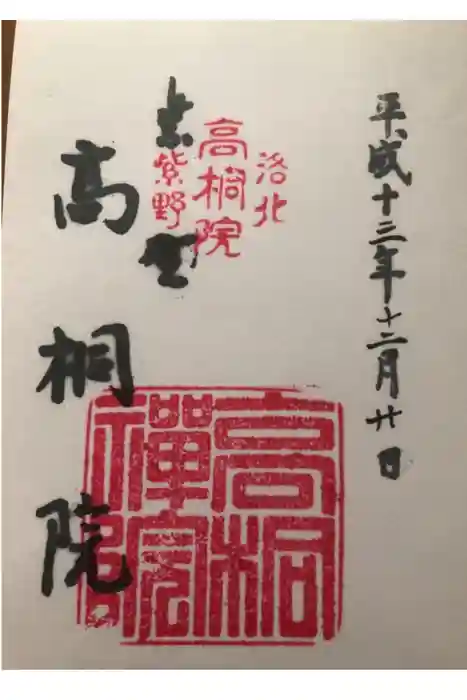 平成十三年十二月廿日
洛北
高桐院
紫野
高桐院
高桐
禪院